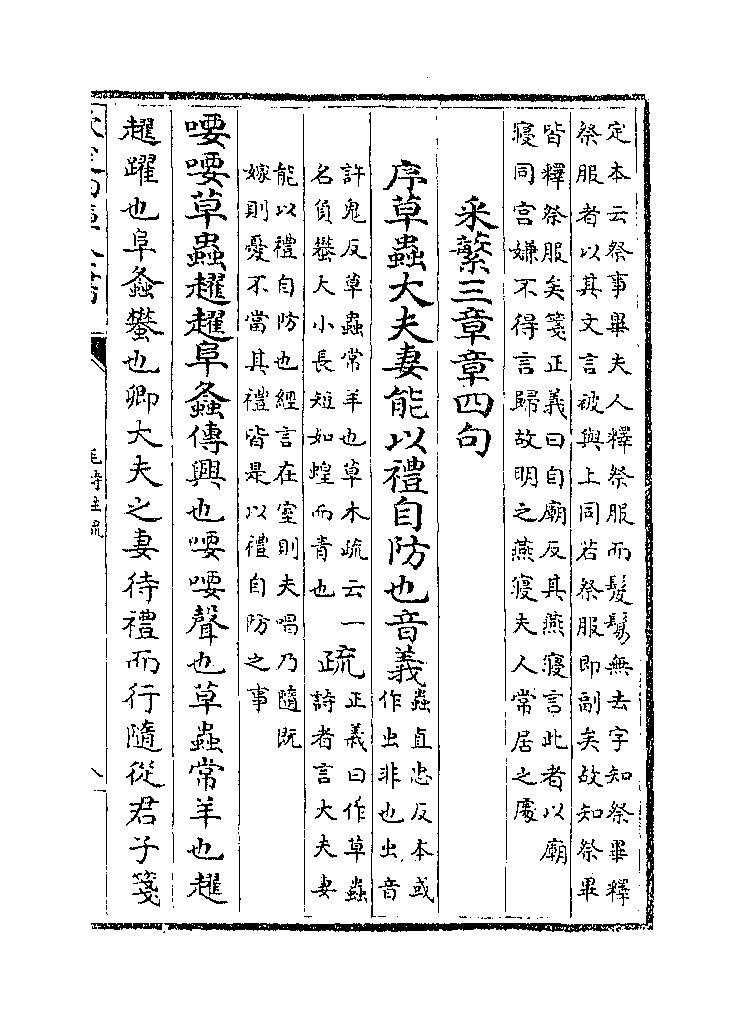 定本云祭事畢夫人釋祭服而髲鬄無去字知祭畢釋
祭服者以其文言被與上同若祭服即副矣故知祭畢
皆釋祭服矣箋正義曰自廟反其燕寢言此者以廟
寢同宫嫌不得言歸故明之燕寢夫人常居之處
采蘩三章章四句
序草蟲大夫妻能以禮自防也音義
蟲直忠反本或
作虫非也虫音
許鬼反草蟲常羊也草木疏云一
名負蠜大小長短如蝗而青也
疏
正義曰作草蟲
詩者言大夫妻
能以禮自防也經言在室則夫唱乃隨既
嫁則憂不當其禮皆是以禮自防之事
喓喓草蟲趯趯阜螽傳興也喓喓聲也草蟲常羊也趯
趯躍也阜螽蠜也卿大夫之妻待禮而行隨從君子箋
毛詩注疏
八